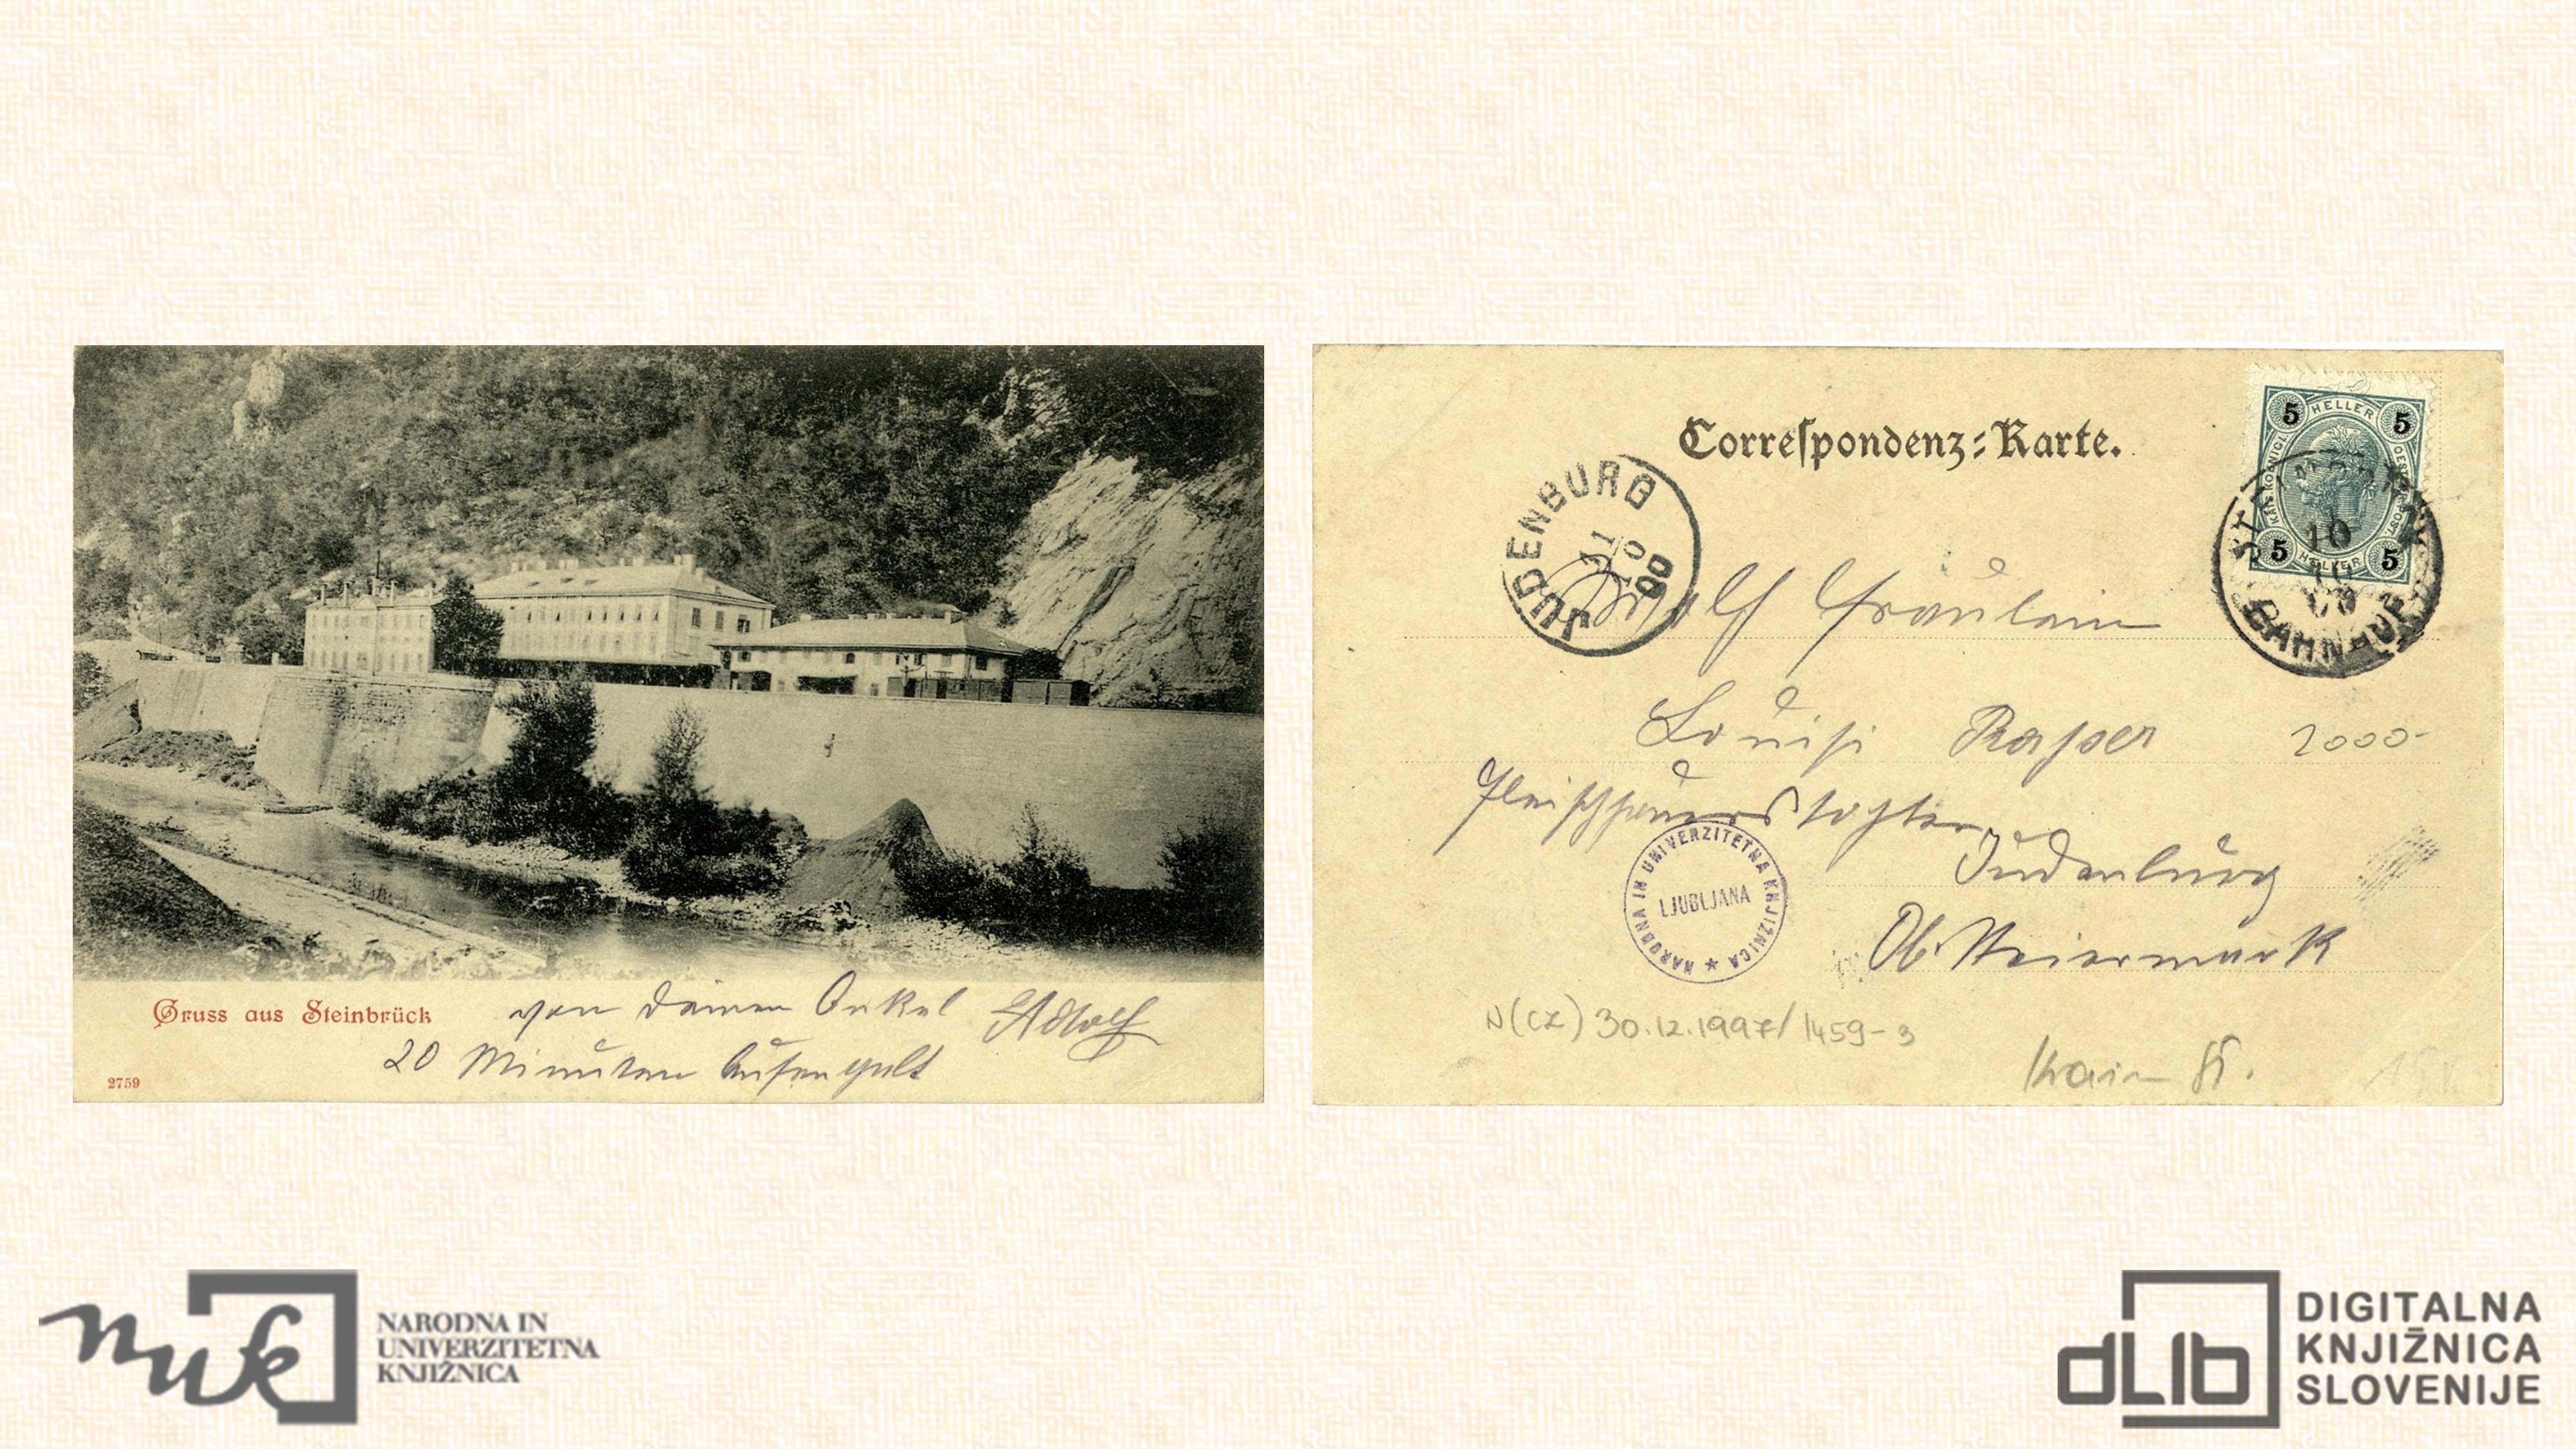 Gruss aus Steinbrück
von deinen Onkel Adolf
20 Minuten Aufenthalt
2759
Correspondenz-Karte.
5 HELLER 5
5 HELLER 5
JUDENBURG
00
10
BAHNHOF
Fräulein
Louisi
2000-
Fleischhauerstochter
Judenburg
Ob. Steiermark
NARODNA IN UNIVERZITETNA KNJIŽNICA ★
LJUBLJANA
N(CZ) 30.12.1997/1459-3
NARODNA IN
UNIVERZITETNA
KNJIŽNICA
nuk
dLib
DIGITALNA
KNJIŽNICA
SLOVENIJE